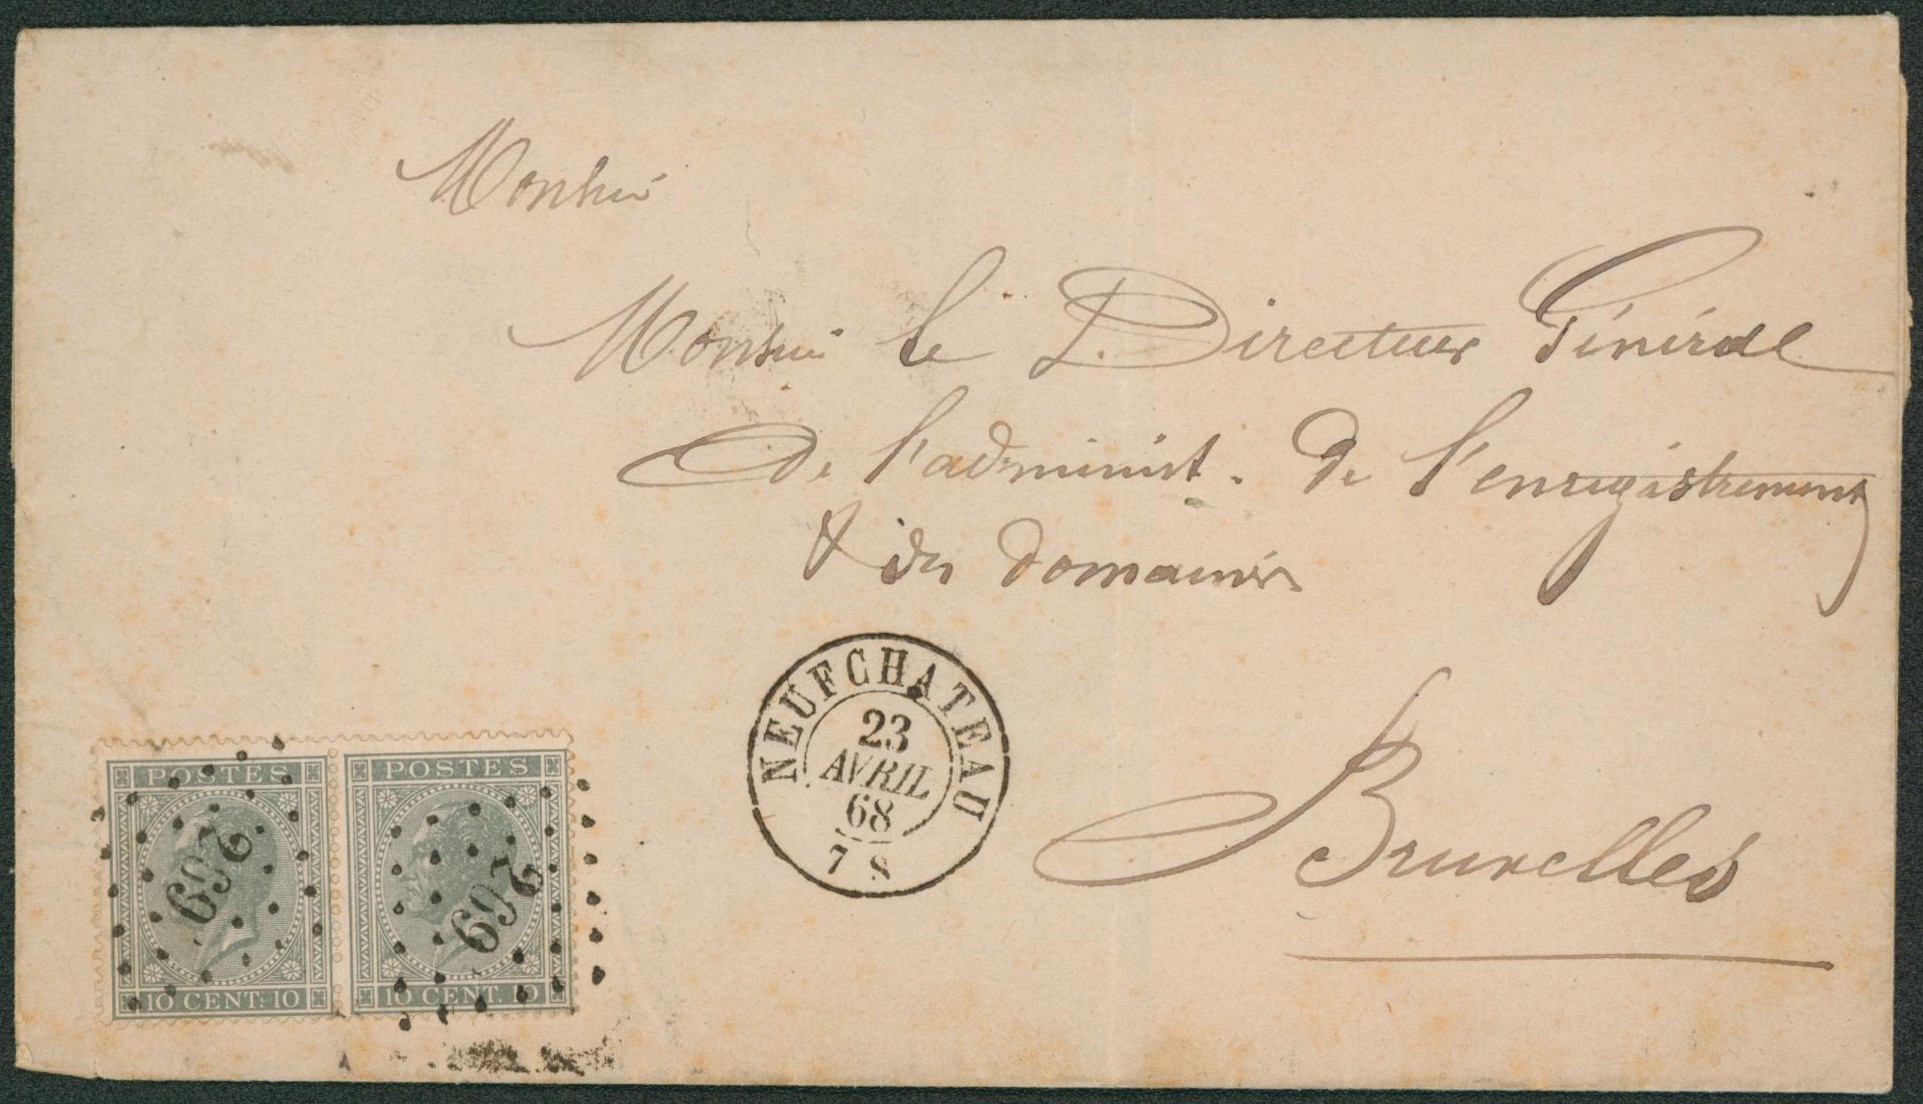 Monsieur
Monsieur le Directeur Général
de l'administ. de l'enregistrement
& des domaines
NEUFCHATEAU
23
AVRIL
68
7 S
Bruxelles
POSTES
269
10 CENT: 10
POSTES
269
10 CENT: 10